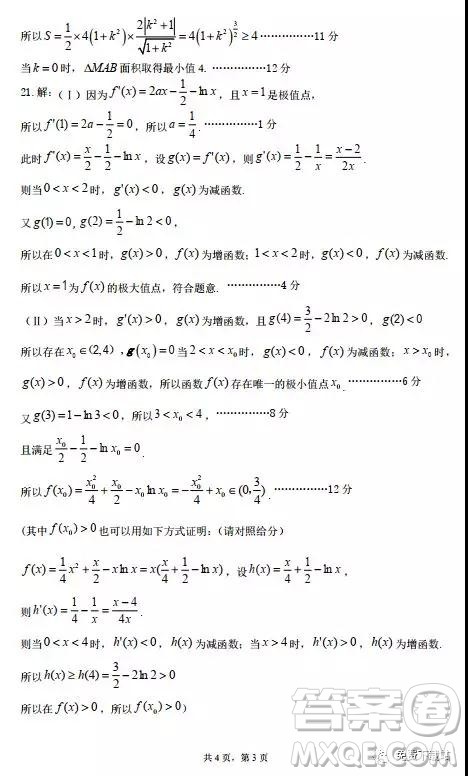 所以 S = 1/2 × 4(1+k²) × 2|k²+1|/√(1+k²) = 4(1+k²)^(3/2) ≥ 4 ……………11 分
当 k = 0 时，ΔMAB 面积取得最小值 4. ……………12 分
21.解：(Ⅰ) 因为 f'(x) = 2ax − 1/2 − ln x，且 x = 1 是极值点，
所以 f'(1) = 2a − 1/2 = 0，所以 a = 1/4. ……………1 分
此时 f'(x) = x/2 − 1/2 − ln x，设 g(x) = f'(x)，则 g'(x) = 1/2 − 1/x = (x−2)/2x.
则当 0 < x < 2 时，g'(x) < 0，g(x) 为减函数.
又 g(1) = 0, g(2) = 1/2 − ln 2 < 0，
所以在 0 < x < 1 时，g(x) > 0，f(x) 为增函数；1 < x < 2 时，g(x) < 0，f(x) 为减函数.
所以 x = 1 为 f(x) 的极大值点，符合题意. ……………4 分
(Ⅱ) 当 x > 2 时，g'(x) > 0，g(x) 为增函数，且 g(4) = 3/2 − 2 ln 2 > 0，g(2) < 0
所以存在 x₀ ∈ (2,4)，g(x₀) = 0 当 2 < x < x₀ 时，g(x) < 0，f(x) 为减函数；x > x₀ 时，
g(x) > 0，f(x) 为增函数，所以函数 f(x) 存在唯一的极小值点 x₀. ……………6 分
又 g(3) = 1 − ln 3 < 0，所以 3 < x₀ < 4，……………8 分
且满足 x₀/2 − 1/2 − ln x₀ = 0.
所以 f(x₀) = x₀²/4 + x₀/2 − x₀ ln x₀ = −x₀²/4 + x₀ ∈ (0, 3/4). ……………12 分
(其中 f(x₀) > 0 也可以用如下方式证明：(请对照给分)
f(x) = 1/4 x² + x/2 − x ln x = x(x/4 + 1/2 − ln x)，设 h(x) = x/4 + 1/2 − ln x，
则 h'(x) = 1/4 − 1/x = (x−4)/4x.
则当 0 < x < 4 时，h'(x) < 0，h(x) 为减函数；当 x > 4 时，h'(x) > 0，h(x) 为增函数.
所以 h(x) ≥ h(4) = 3/2 − 2 ln 2 > 0
所以在 f(x) > 0，所以 f(x₀) > 0）
共 4 页，第 3 页
答案圈
MXQE.COM
免费下载站